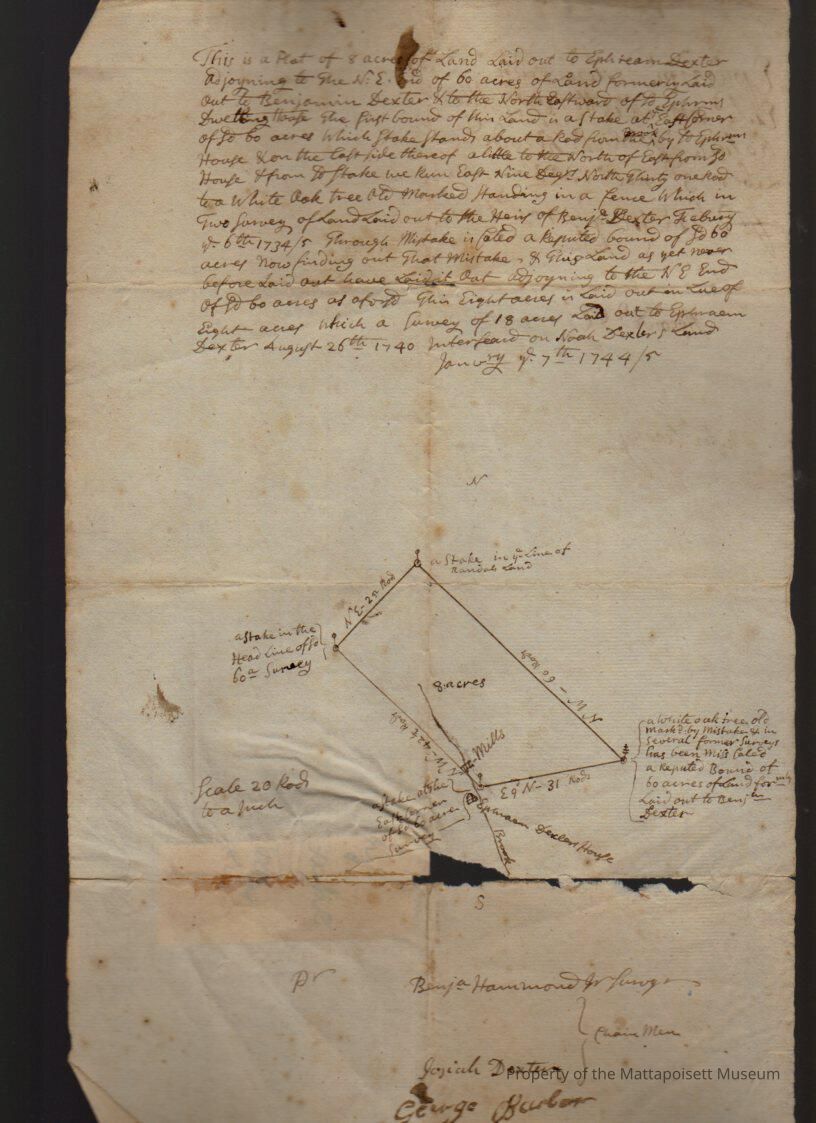 This is a Plat of 8 acres of Land Laid out to Ephream Dexter
Adjoyning to The N. E. End of 60 acres of Land formerly Laid
out to Benjamin Dexter & to the North Eastward of sd Ephrms
Dwelling House The first bound of this Land is a Stake at ye East Corner
of Sd 60 acres Which Stake Stands about a Rod from the by sd Ephrm
House & on the East side thereof a little to the North of East from Sd
House & from Sd Stake we Run East Nine Degrs North Thirty one Rod
to a White Oak tree Old Marked Standing in a fence Which in
Two Survey of Land Laid out to the Heirs of Benja Dexter Febury
ye 6th 1734/5 Through Mistake is Caled a Reputed bound of Sd 60
acres Now finding out That Mistake, & This Land as yet never
before Laid out have Laid it Out Adjoyning to the N E End
Of Sd 60 acres as aforsd This Eight acres is Laid out in Lue of
Eight acres Which a Survey of 18 acres Laid out to Ephraem
Dexter August 26th 1740 Interfeard on Noah Dexter's Land
Janury ye 7th 1744/5
N
a Stake in ye Line of
Randals Land
N E - 25 Rod
a Stake in the
Head Line of Sd
60a Survey
N W - 60 Rods
8 acres
N W - 42 Rods
Mills
a White oak tree old
markd by Mistake & in
Several former Surveys
has been Miss Caled
a Reputed Bound of
60 acres of Land formerly
Laid out to Benjmn
Dexter
Scale 20 Rods
to a Inch
E 9° N - 31 Rods
a Stake at the
East Corner
of Sd 60 acres
Survey
Ephraem Dexters House
Brook
S
Pr
Benja Hammond Jr Survyr
Chain Men
Josiah Dexter
George Barbor
Property of the Mattapoisett Museum